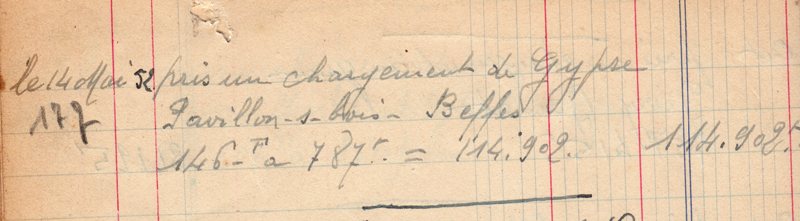 le 14 Mai 52 pris un chargement de Gypse
177 Pavillon-s-bois - Beffes
146-T a 787f. = 114.902. 114.902f.